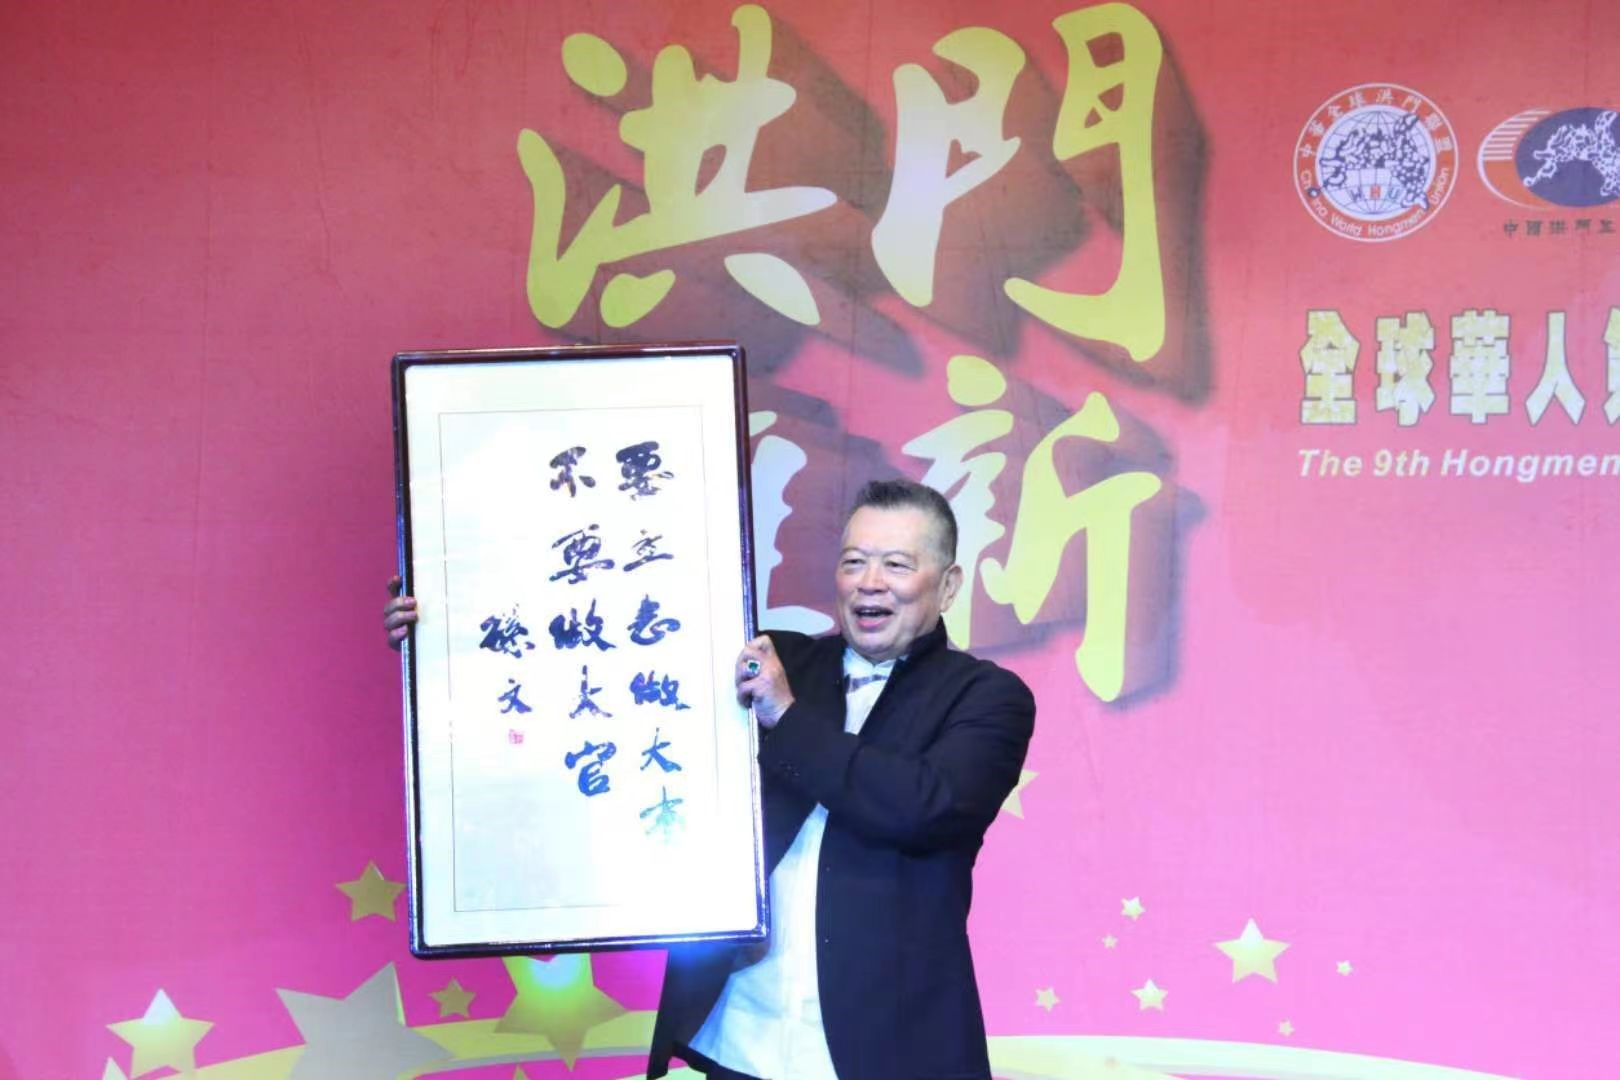 洪門
新
中華全球洪門聯盟
WHU
China World Hongmen Union
中國洪門
全球華人
The 9th Hongmen
要立志做大事
不要做大官
孫文